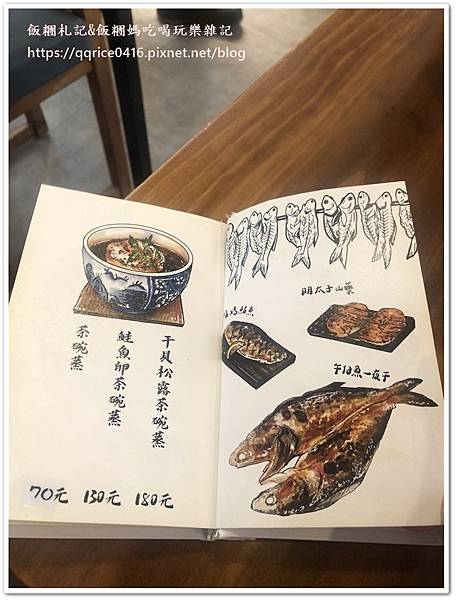 飯糰札記&飯糰媽吃喝玩樂雜記
https://qqrice0416.pixnet.net/blog
干貝松露茶碗蒸
鮭魚卵茶碗蒸
茶碗蒸
70元 130元 180元
明太子山藥
一夜干